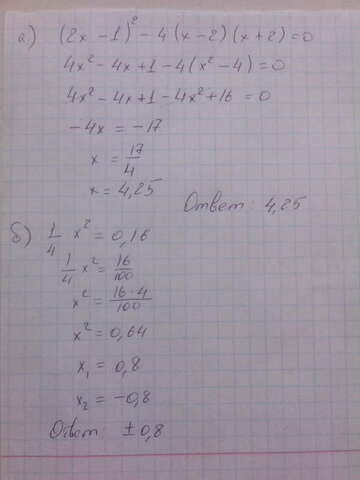 а) (2x - 1)² - 4(x - 2)(x + 2) = 0
4x² - 4x + 1 - 4(x² - 4) = 0
4x² - 4x + 1 - 4x² + 16 = 0
-4x = -17
x = 17/4
x = 4,25
Ответ: 4,25
б) 1/4 x² = 0,16
1/4 x² = 16/100
x² = 16·4/100
x² = 0,64
x₁ = 0,8
x₂ = -0,8
Ответ: ±0,8